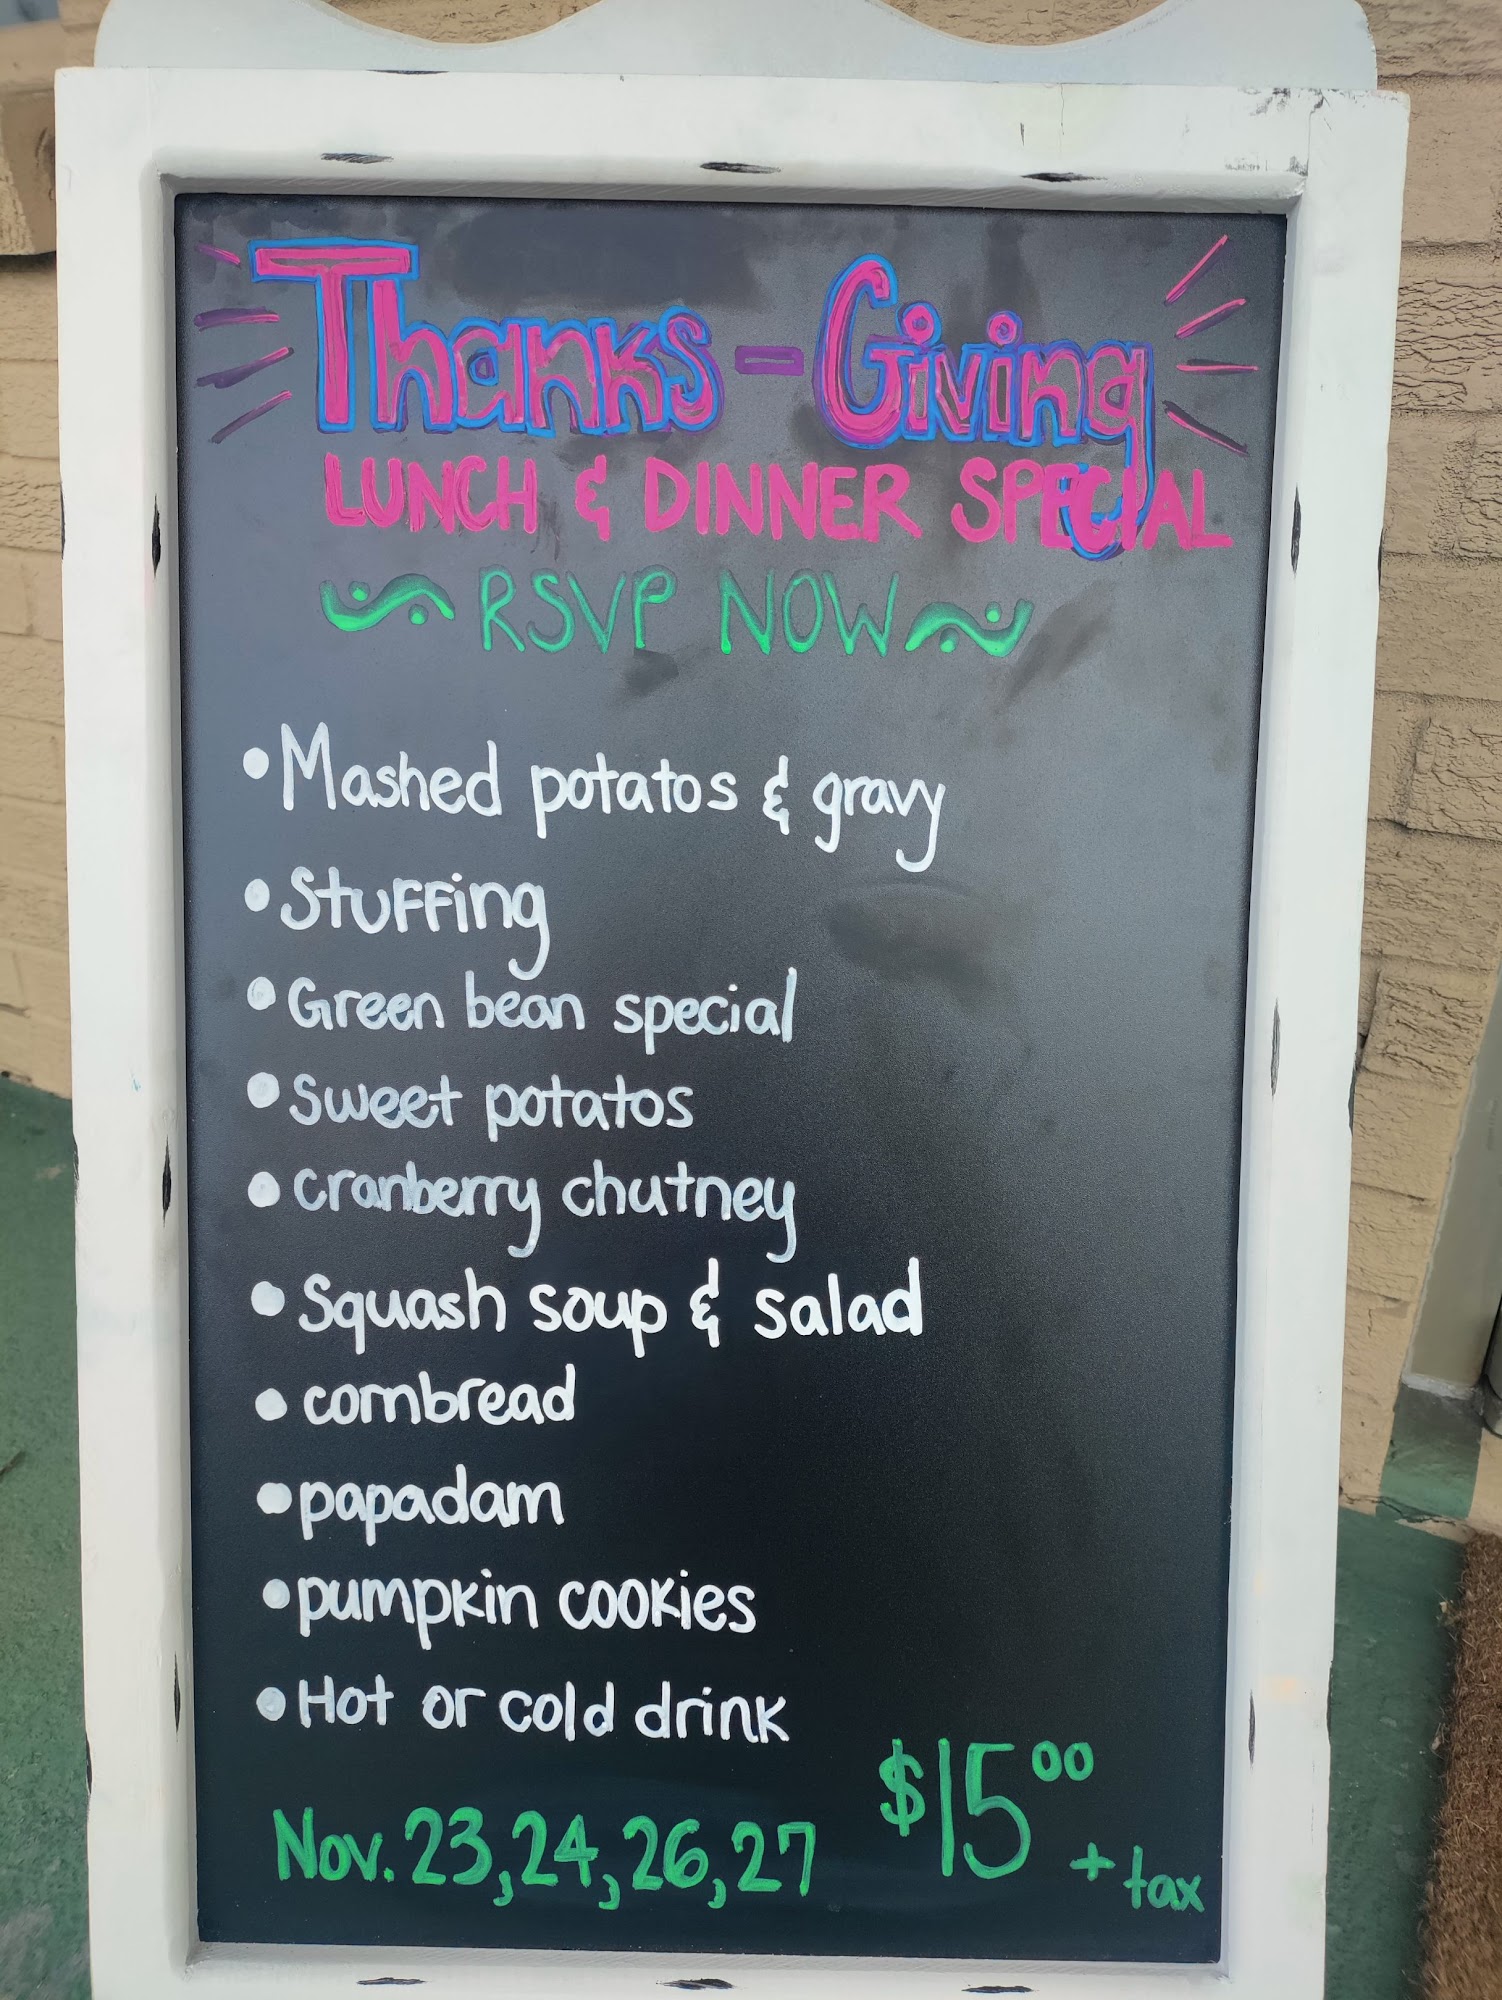 Thanks-Giving
LUNCH & DINNER SPECIAL
RSVP NOW
• Mashed potatos & gravy
• Stuffing
• Green bean special
• Sweet potatos
• cranberry chutney
• Squash soup & salad
• cornbread
• papadam
• pumpkin cookies
• Hot or cold drink
$15.00 + tax
Nov. 23, 24, 26, 27